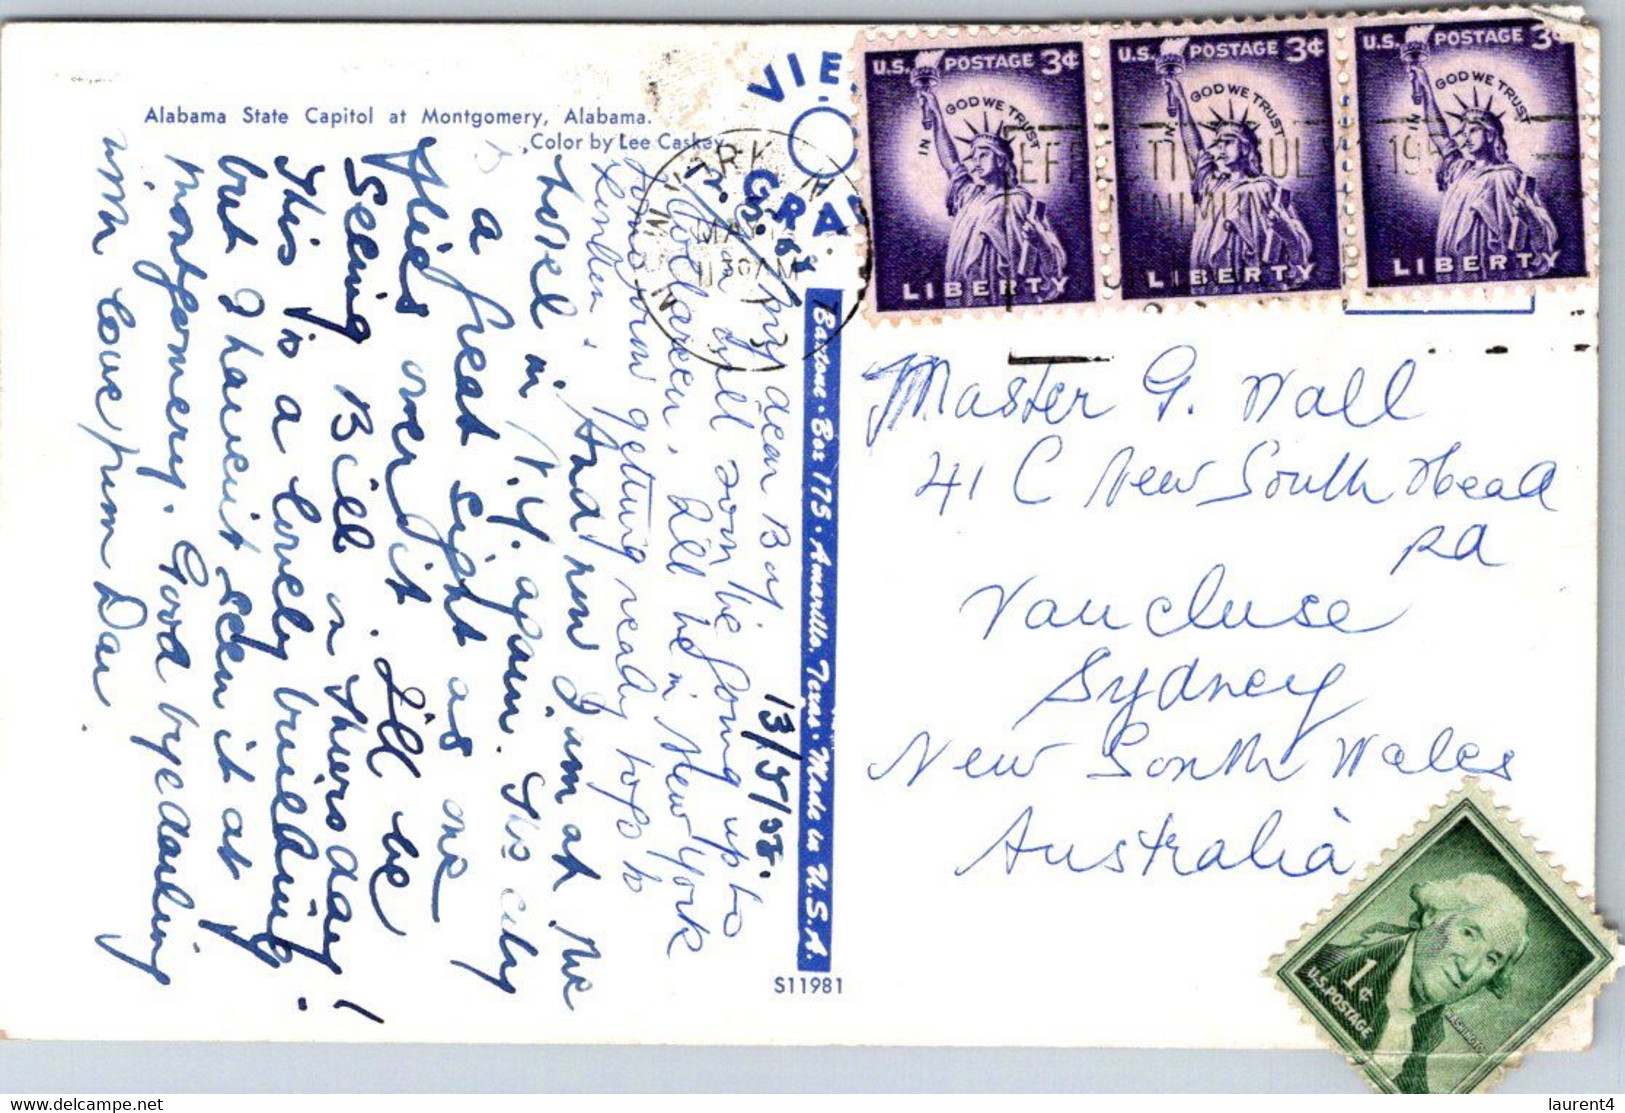 Alabama State Capitol at Montgomery, Alabama.
Color by Lee Caskey
VIE
GRA
MAY
11 30 AM
U.S. POSTAGE 3¢
IN GOD WE TRUST
LIBERTY
U.S. POSTAGE 3¢
IN GOD WE TRUST
LIBERTY
U.S. POSTAGE 3¢
IN GOD WE TRUST
LIBERTY
EFFECTIVE JULY 1-195
13/5/58.
My dear Boy
soon be going up to
I'll be in New York
tomorrow getting ready to go to
London. And now I am at the
hotel in N.Y. again. The city
a great sight as we
flies over it. I'll be
Seeing Bill on Thursday!
This is a lovely building
but I haven't seen it at
Montgomery. Good bye darling
with love from Dau.
Bastone · Box 175 · Amarillo, Texas · Made in U.S.A.
S11981
Master G. Wall
41 C New South Head
Rd
Vaucluse
Sydney
New South Wales
Australia
1¢
U.S. POSTAGE
WASHINGTON
laurent4